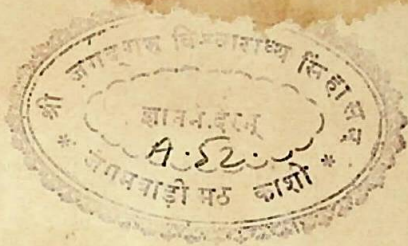 श्री जगद्गुरु विश्वाराध्य सिंहासन
ज्ञानमंदिरम्
A.52..
* जंगमवाड़ी मठ काशी *